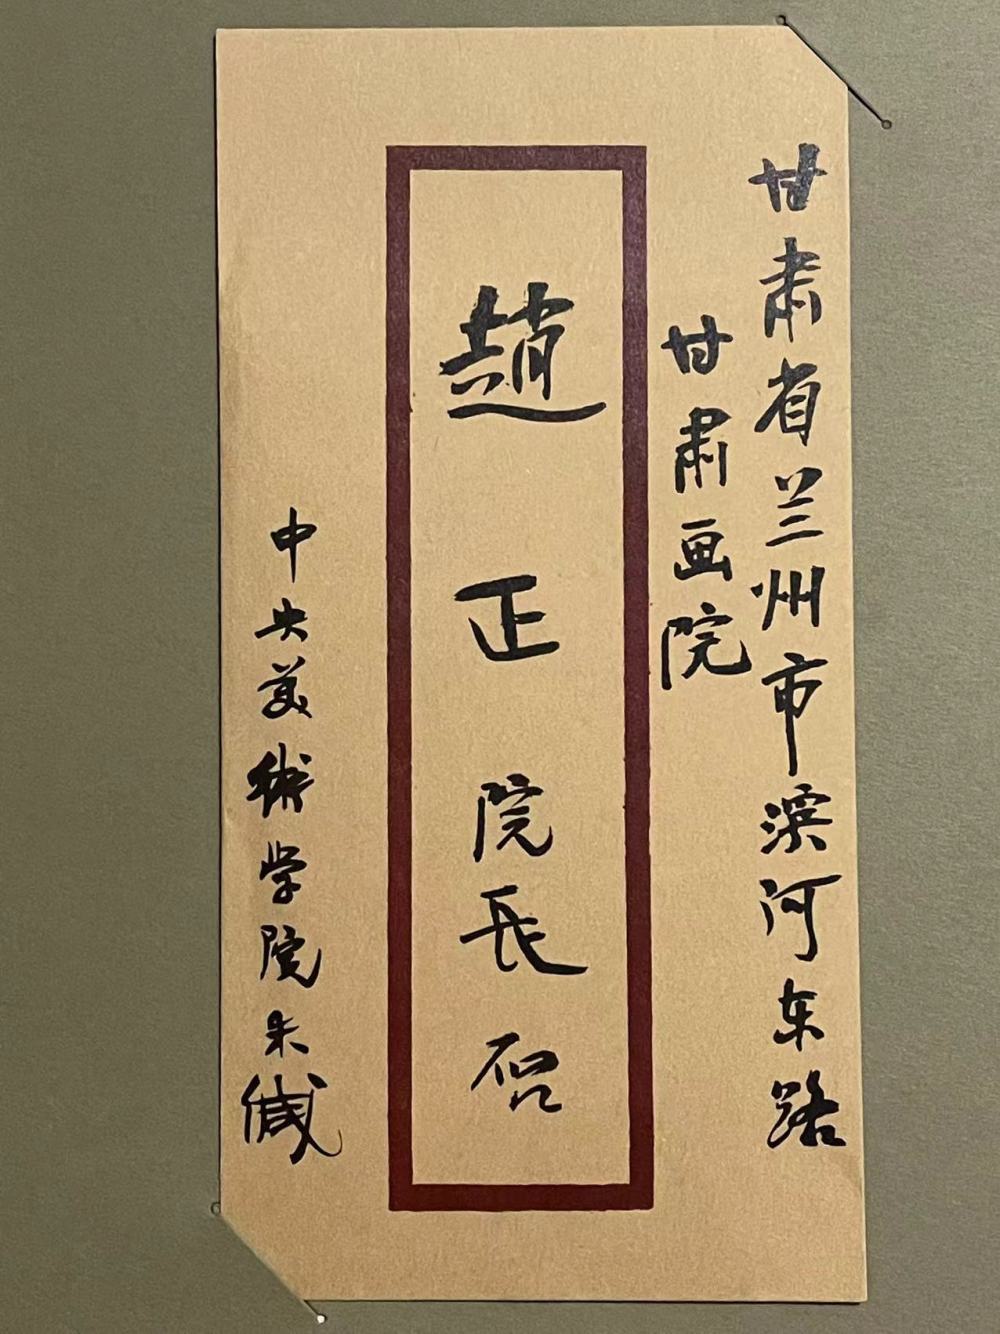 甘肃省兰州市滨河东路
甘肃画院
趙正院長启
中央美術学院朱缄